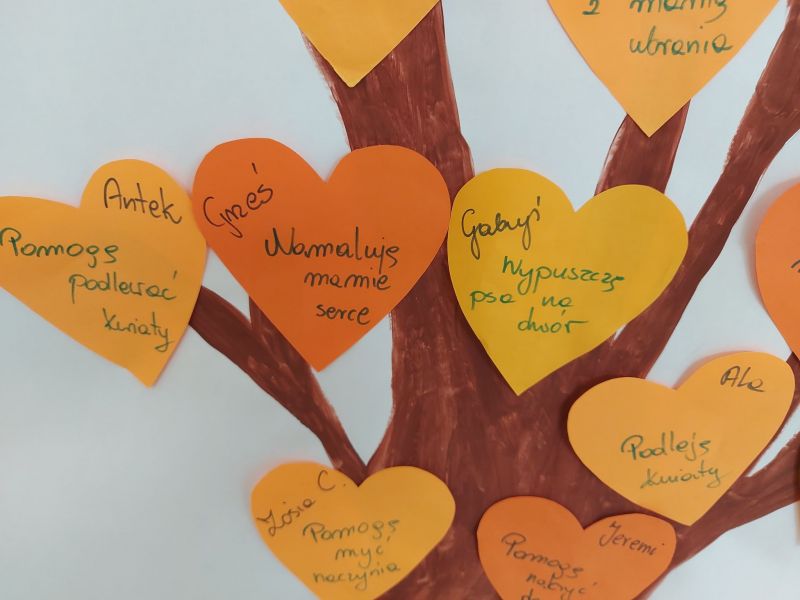 z mamą
ubrania
Antek
Pomogę
podlewać
kwiaty
Grześ
Namaluję
mamie
serce
Gabryś
Wypuszczę
psa na
dwór
Ala
Podleję
kwiaty
Zosia C.
Pomogę
myć
naczynia
Jeremi
Pomogę
nakryć